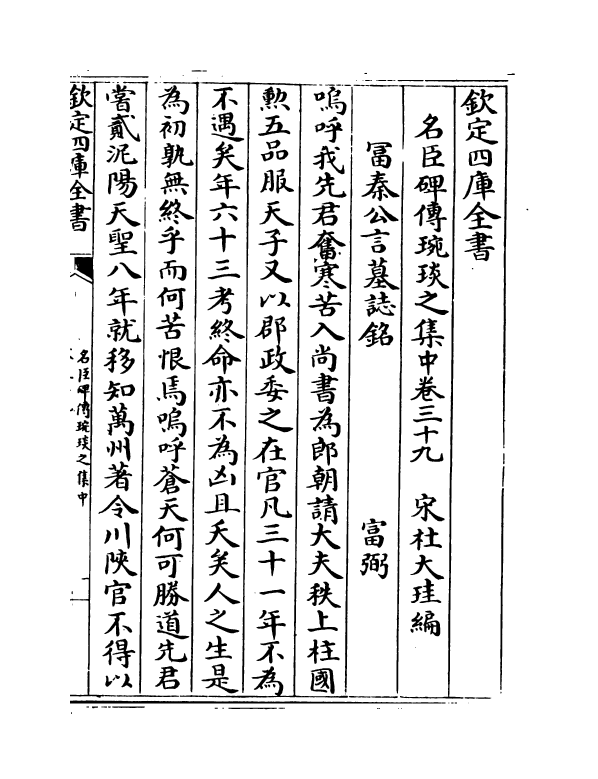 欽定四庫全書
名臣碑傳琬琰之集中卷三十九　宋杜大珪編
冨秦公言墓誌銘　富弼
嗚呼我先君奮寒苦入尚書為郎朝請大夫秩上柱國
勲五品服天子又以郡政委之在官凡三十一年不為
不遇矣年六十三考終命亦不為凶且夭矣人之生是
為初孰無終乎而何苦恨焉嗚呼蒼天何可勝道先君
嘗貳泥陽天聖八年就移知萬州著令川陜官不得以
欽定四庫全書
名臣碑傳琬琰之集中